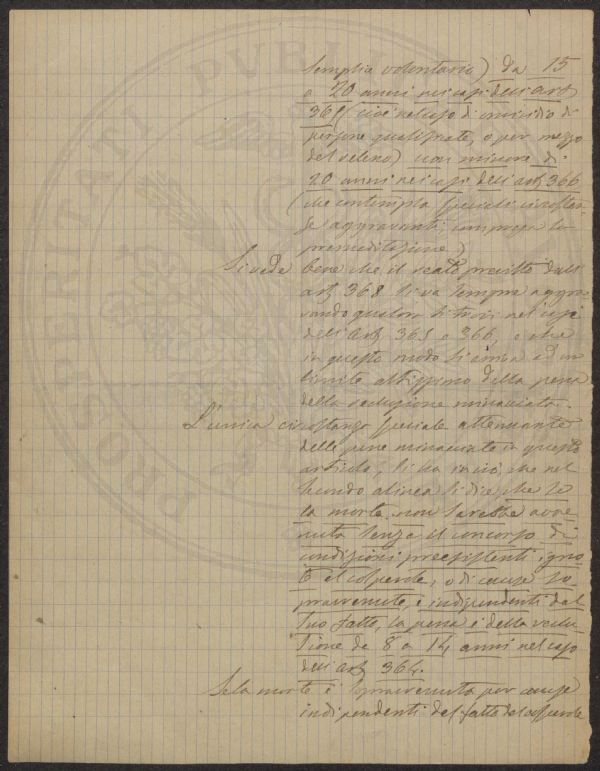 semplice volontario) da 15
a 20 anni nei casi dell'art
365 (cioè nel caso di omicidio di
persone qualificate, o per mezzo
del veleno) non minore di
20 anni nei casi dell'art 366
(che contempla speciali circostan-
ze aggravanti, compresa la
premeditazione.)
Si vede bene che il reato previsto dall'
art 368 si va sempre aggra-
vando qualora si trovi nei casi
dell'art 365 o 366, e che
in questo modo si arriva ad un
limite altissimo della pena
della reclusione minacciata.
L'unica circostanza speciale attenuante
delle pene minacciate in questo
articolo, si ha in ciò, che nel
secondo alinea si dice, che se
la morte non sarebbe avve-
nuta senza il concorso di
condizioni preesistenti igno-
te al colpevole, o di cause so-
pravvenute, e indipendenti dal
suo fatto, la pena è della reclu-
sione da 8 a 14 anni nel caso
dell'art 364.
Se la morte è sopravvenuta per cause
indipendenti del fatto del colpevole
PROSPERITATI PUBLI